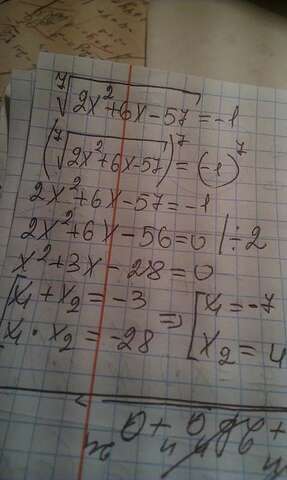 ⁷√(2x²+6x-57) = -1
(⁷√(2x²+6x-57))⁷ = (-1)⁷
2x²+6x-57=-1
2x²+6x-56=0 | ÷2
x²+3x-28=0
[x₁+x₂=-3 ⇒ [x₁=-7
x₁·x₂=-28 x₂=4